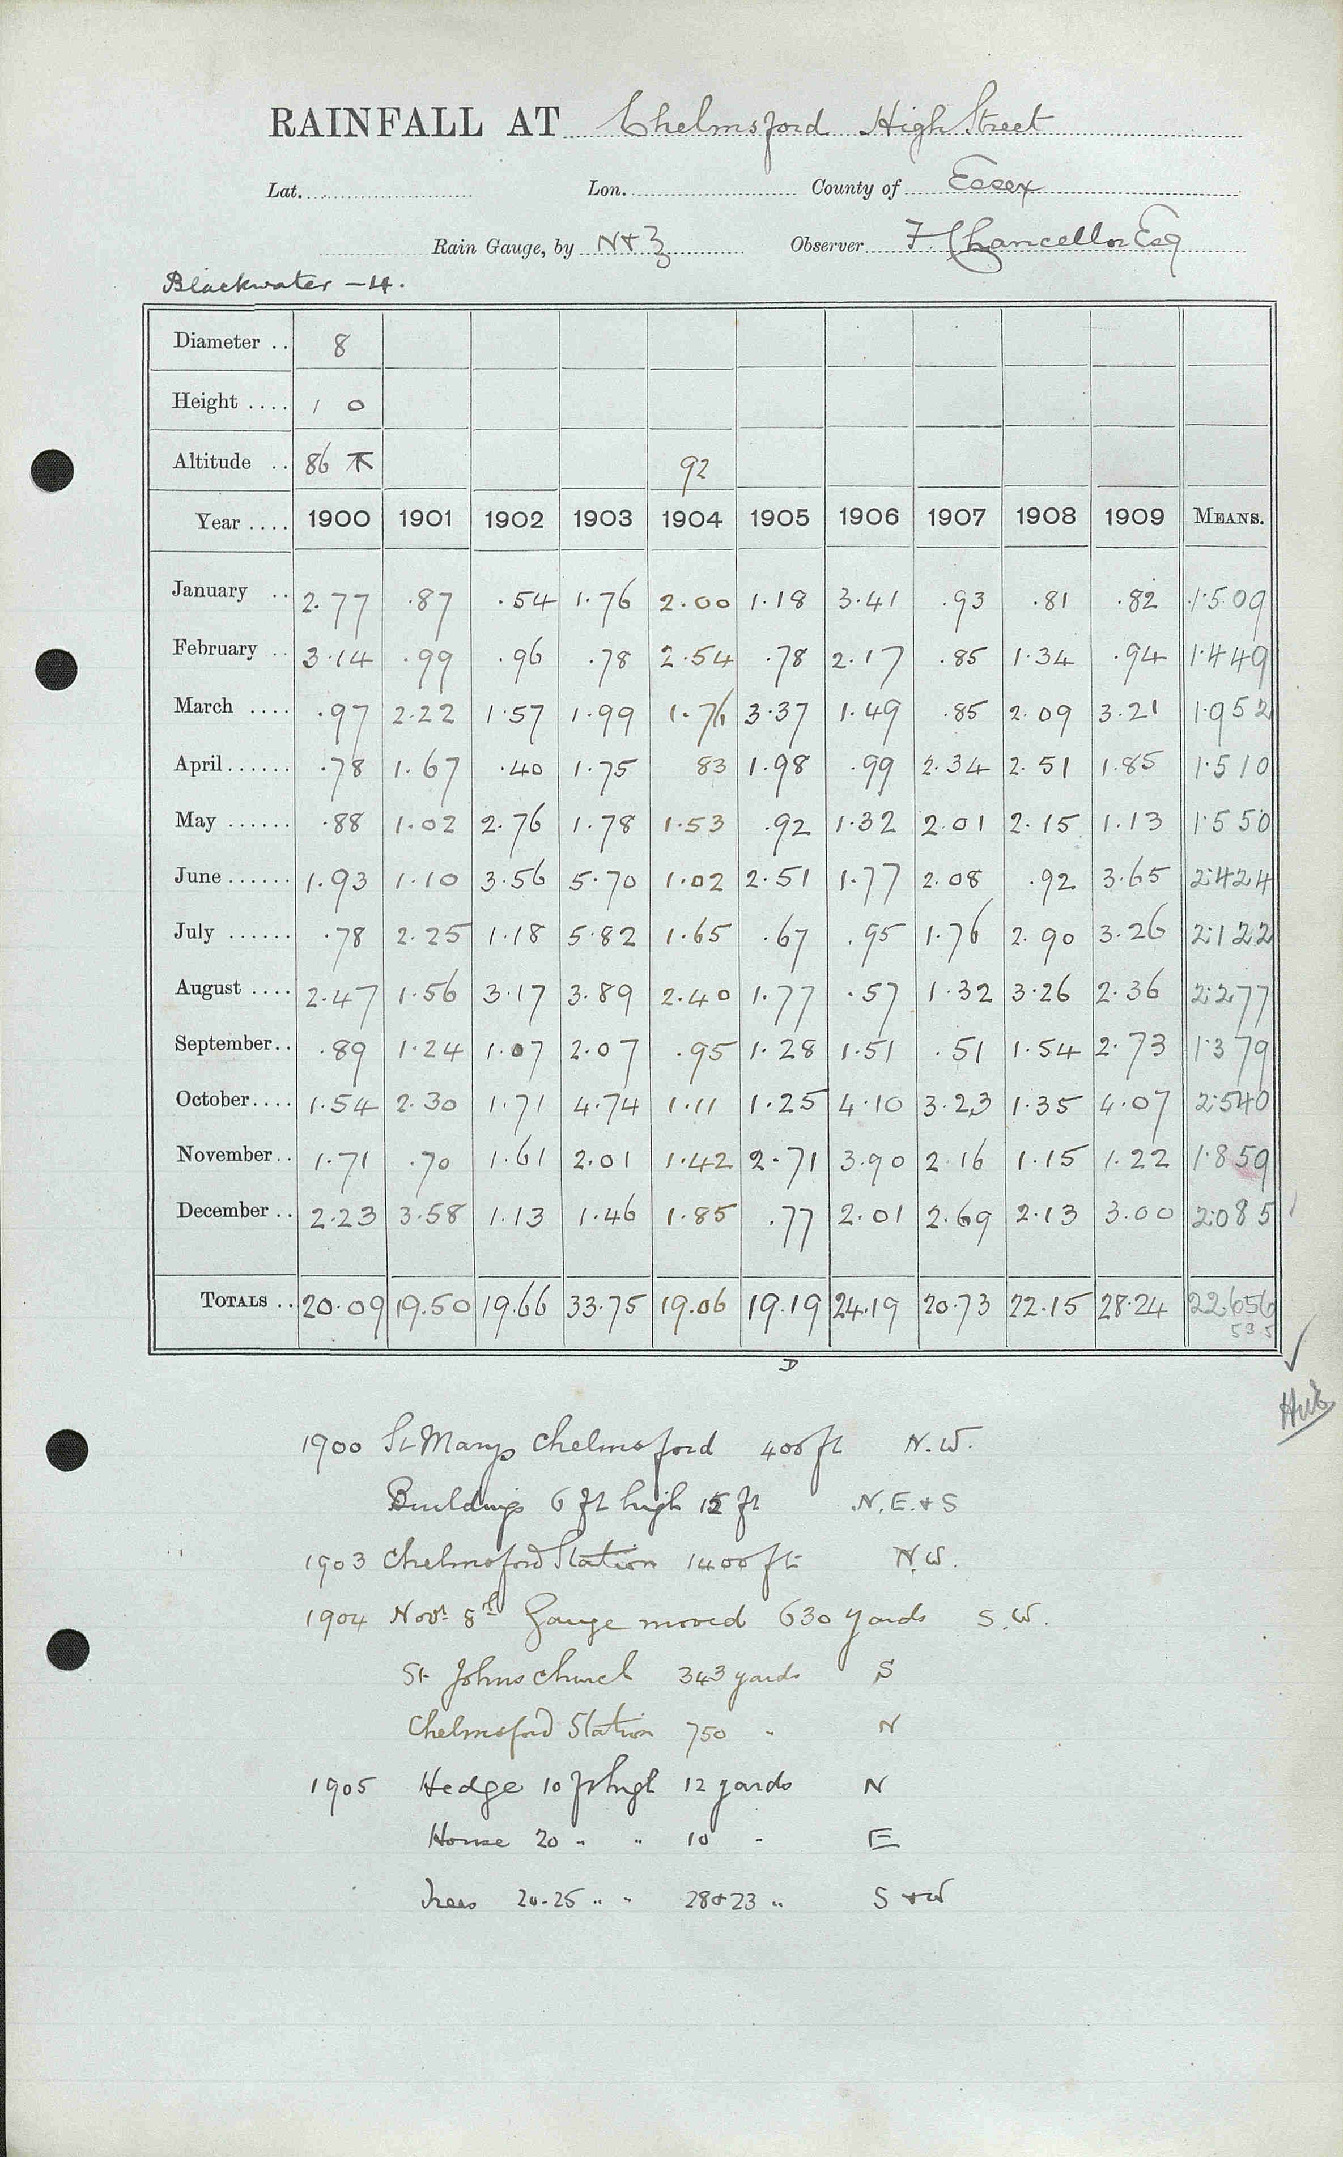 RAINFALL AT Chelmsford High Street
Lat. Lon. County of Essex
Rain Gauge, by N & Z Observer F. Chancellor Esq
Blackwater - 4.
Diameter .. 8
Height .... 1 0
Altitude .. 86 T 92
Year .... 1900 1901 1902 1903 1904 1905 1906 1907 1908 1909 MEANS.
January .. 2.77 .87 .54 1.76 2.00 1.18 3.41 .93 .81 .82 1.509
February .. 3.14 .99 .96 .78 2.54 .78 2.17 .85 1.34 .94 1.449
March .... .97 2.22 1.57 1.99 1.76 3.37 1.49 .85 2.09 3.21 1.952
April ...... .78 1.67 .40 1.75 83 1.98 .99 2.34 2.51 1.85 1.510
May ...... .88 1.02 2.76 1.78 1.53 .92 1.32 2.01 2.15 1.13 1.550
June ...... 1.93 1.10 3.56 5.70 1.02 2.51 1.77 2.08 .92 3.65 2.424
July ...... .78 2.25 1.18 5.82 1.65 .67 .95 1.76 2.90 3.26 2.122
August .... 2.47 1.56 3.17 3.89 2.40 1.77 .57 1.32 3.26 2.36 2.277
September .. .89 1.24 1.07 2.07 .95 1.28 1.51 .51 1.54 2.73 1.379
October .... 1.54 2.30 1.71 4.74 1.11 1.25 4.10 3.23 1.35 4.07 2.540
November .. 1.71 .70 1.61 2.01 1.42 2.71 3.90 2.16 1.15 1.22 1.859
December .. 2.23 3.58 1.13 1.46 1.85 .77 2.01 2.69 2.13 3.00 2.085
TOTALS .. 20.09 19.50 19.66 33.75 19.06 19.19 24.19 20.73 22.15 28.24 22.656
535
D
1900 St Marys Chelmsford 400 ft N.W.
Buildings 6 ft high 15 ft N.E. & S
1903 Chelmsford Station 1400 ft N.W.
1904 Novr 8th Gauge moved 630 yards S.W.
St Johns church 343 yards S
Chelmsford Station 750 " N
1905 Hedge 10 ft high 12 yards N
House 20 " " 10 " E
Trees 20-25 " " 28 & 23 " S & W